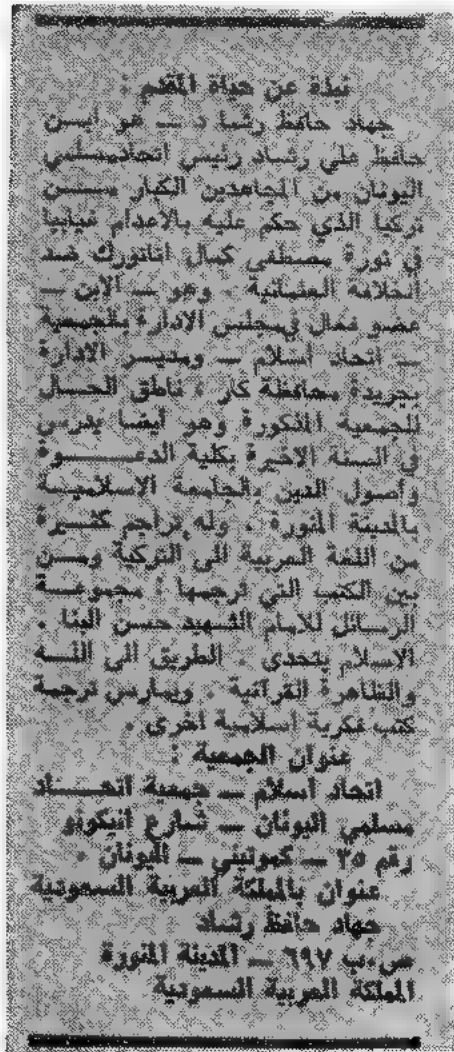 نبذة عن حياة المقدم :
جهاد حافظ رشاد ــ هو ابـــن
حافظ علي رشاد رئيس اتحاد مسلمي
اليونان من المجاهدين الكبار مـــن
تركيا الذي حكم عليه بالاعدام غيابيا
في ثورة مصطفى كمال اتاتورك ضد
الخلافة العثمانية . وهو ــ الابن ــ
عضو فعال في مجلس الادارة بالجمعية
ــ اتحاد اسلام ــ ومديـــر الادارة
بجريدة محافظة كار ، ناطق الحـــال
للجمعية المذكورة وهو ايضا يدرس
في السنة الاخيرة بكلية الدعـــوة
واصول الدين بالجامعة الاسلاميـــة
بالمدينة المنورة . وله تراجم كثـــيرة
من اللغة العربية الى التركية ومـــن
بين الكتب التي ترجمها : مجموعـــة
الرسائل للامام الشهيد حسن البنا .
الاسلام يتحدى . الطريق الى اللـــه
والظاهرة القرآنية . ويمارس ترجمة
كتب فكرية اسلامية اخرى .
عنوان الجمعية :
اتحاد اسلام ــ جمعية اتحـــاد
مسلمي اليونان ــ شارع انيكوتو
رقم ٢٥ ــ كموتيني ــ اليونان .
عنوان بالمملكة العربية السعودية
جهاد حافظ رشاد
ص.ب ٦٩٧ ــ المدينة المنورة
المملكة العربية السعودية